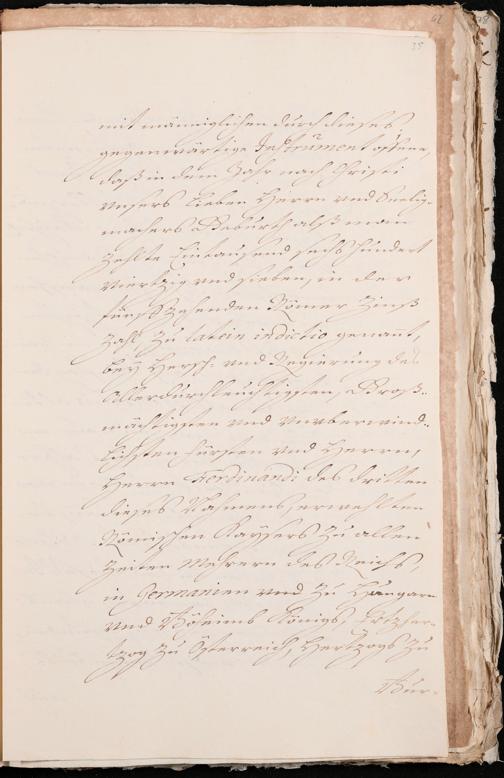 62
38
35
mit männiglichen durch dieses
gegenwärtige Instrument offene,
daß in dem Jahr nach Christi
vnsers lieben Herrn vnd Seelig-
machers Geburth alß man
Zehlte Eintausend sechs hundert
viertzig vnd sieben, in der
fünffZehenden Römer Zinß
Zahl, Zu latein indictio genannt,
bey Hersch- vnd Regierung des
Allerdurchleuchtigsten, Groß-
mächtigsten vnd vnvberwind-
lichsten Fürsten vnd Herrn,
Herrn Ferdinandi des dritten
dieses Nahmens, erwehlten
Römischen Kaysers Zu allen
Zeiten Mehrern des Reichs,
in Germanien vnd Zu Hungarn
vnd Böheimb Königs, Ertzher-
tzog Zu Österreich, Hertzogs Zu
Bur-